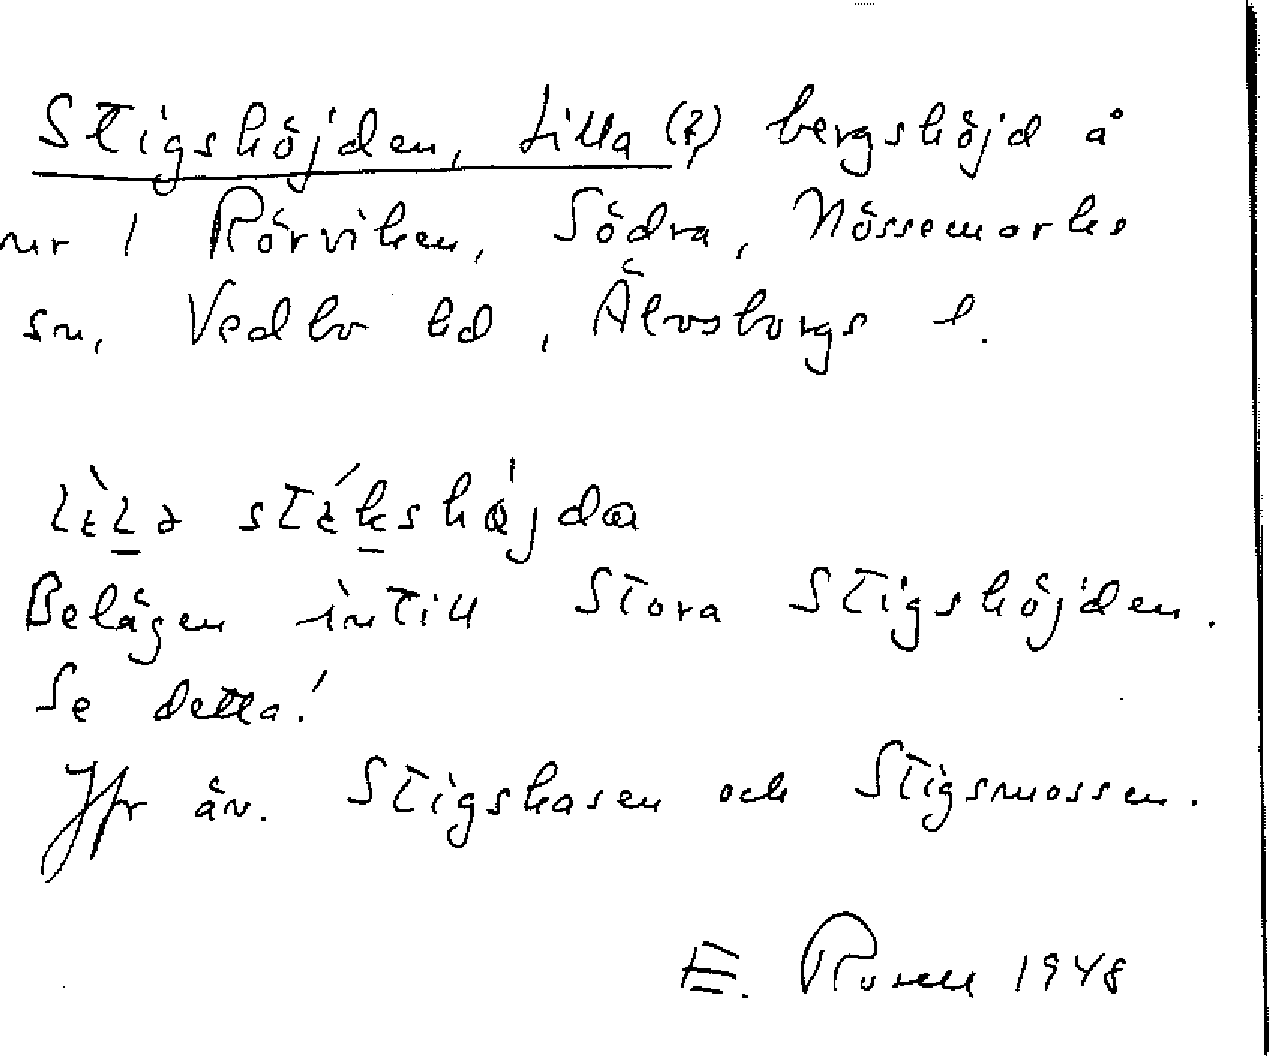 Stigshöjden, Lilla (?) bergshöjd å
nr 1 Rörviken, Södra, Nössemarks
sn, Vedbo hd, Älvsborgs l.
Belägen intill Stora Stigshöjden.
Se detta!
Jfr äv. Stigskasen och Stigsmossen.
E. 1948